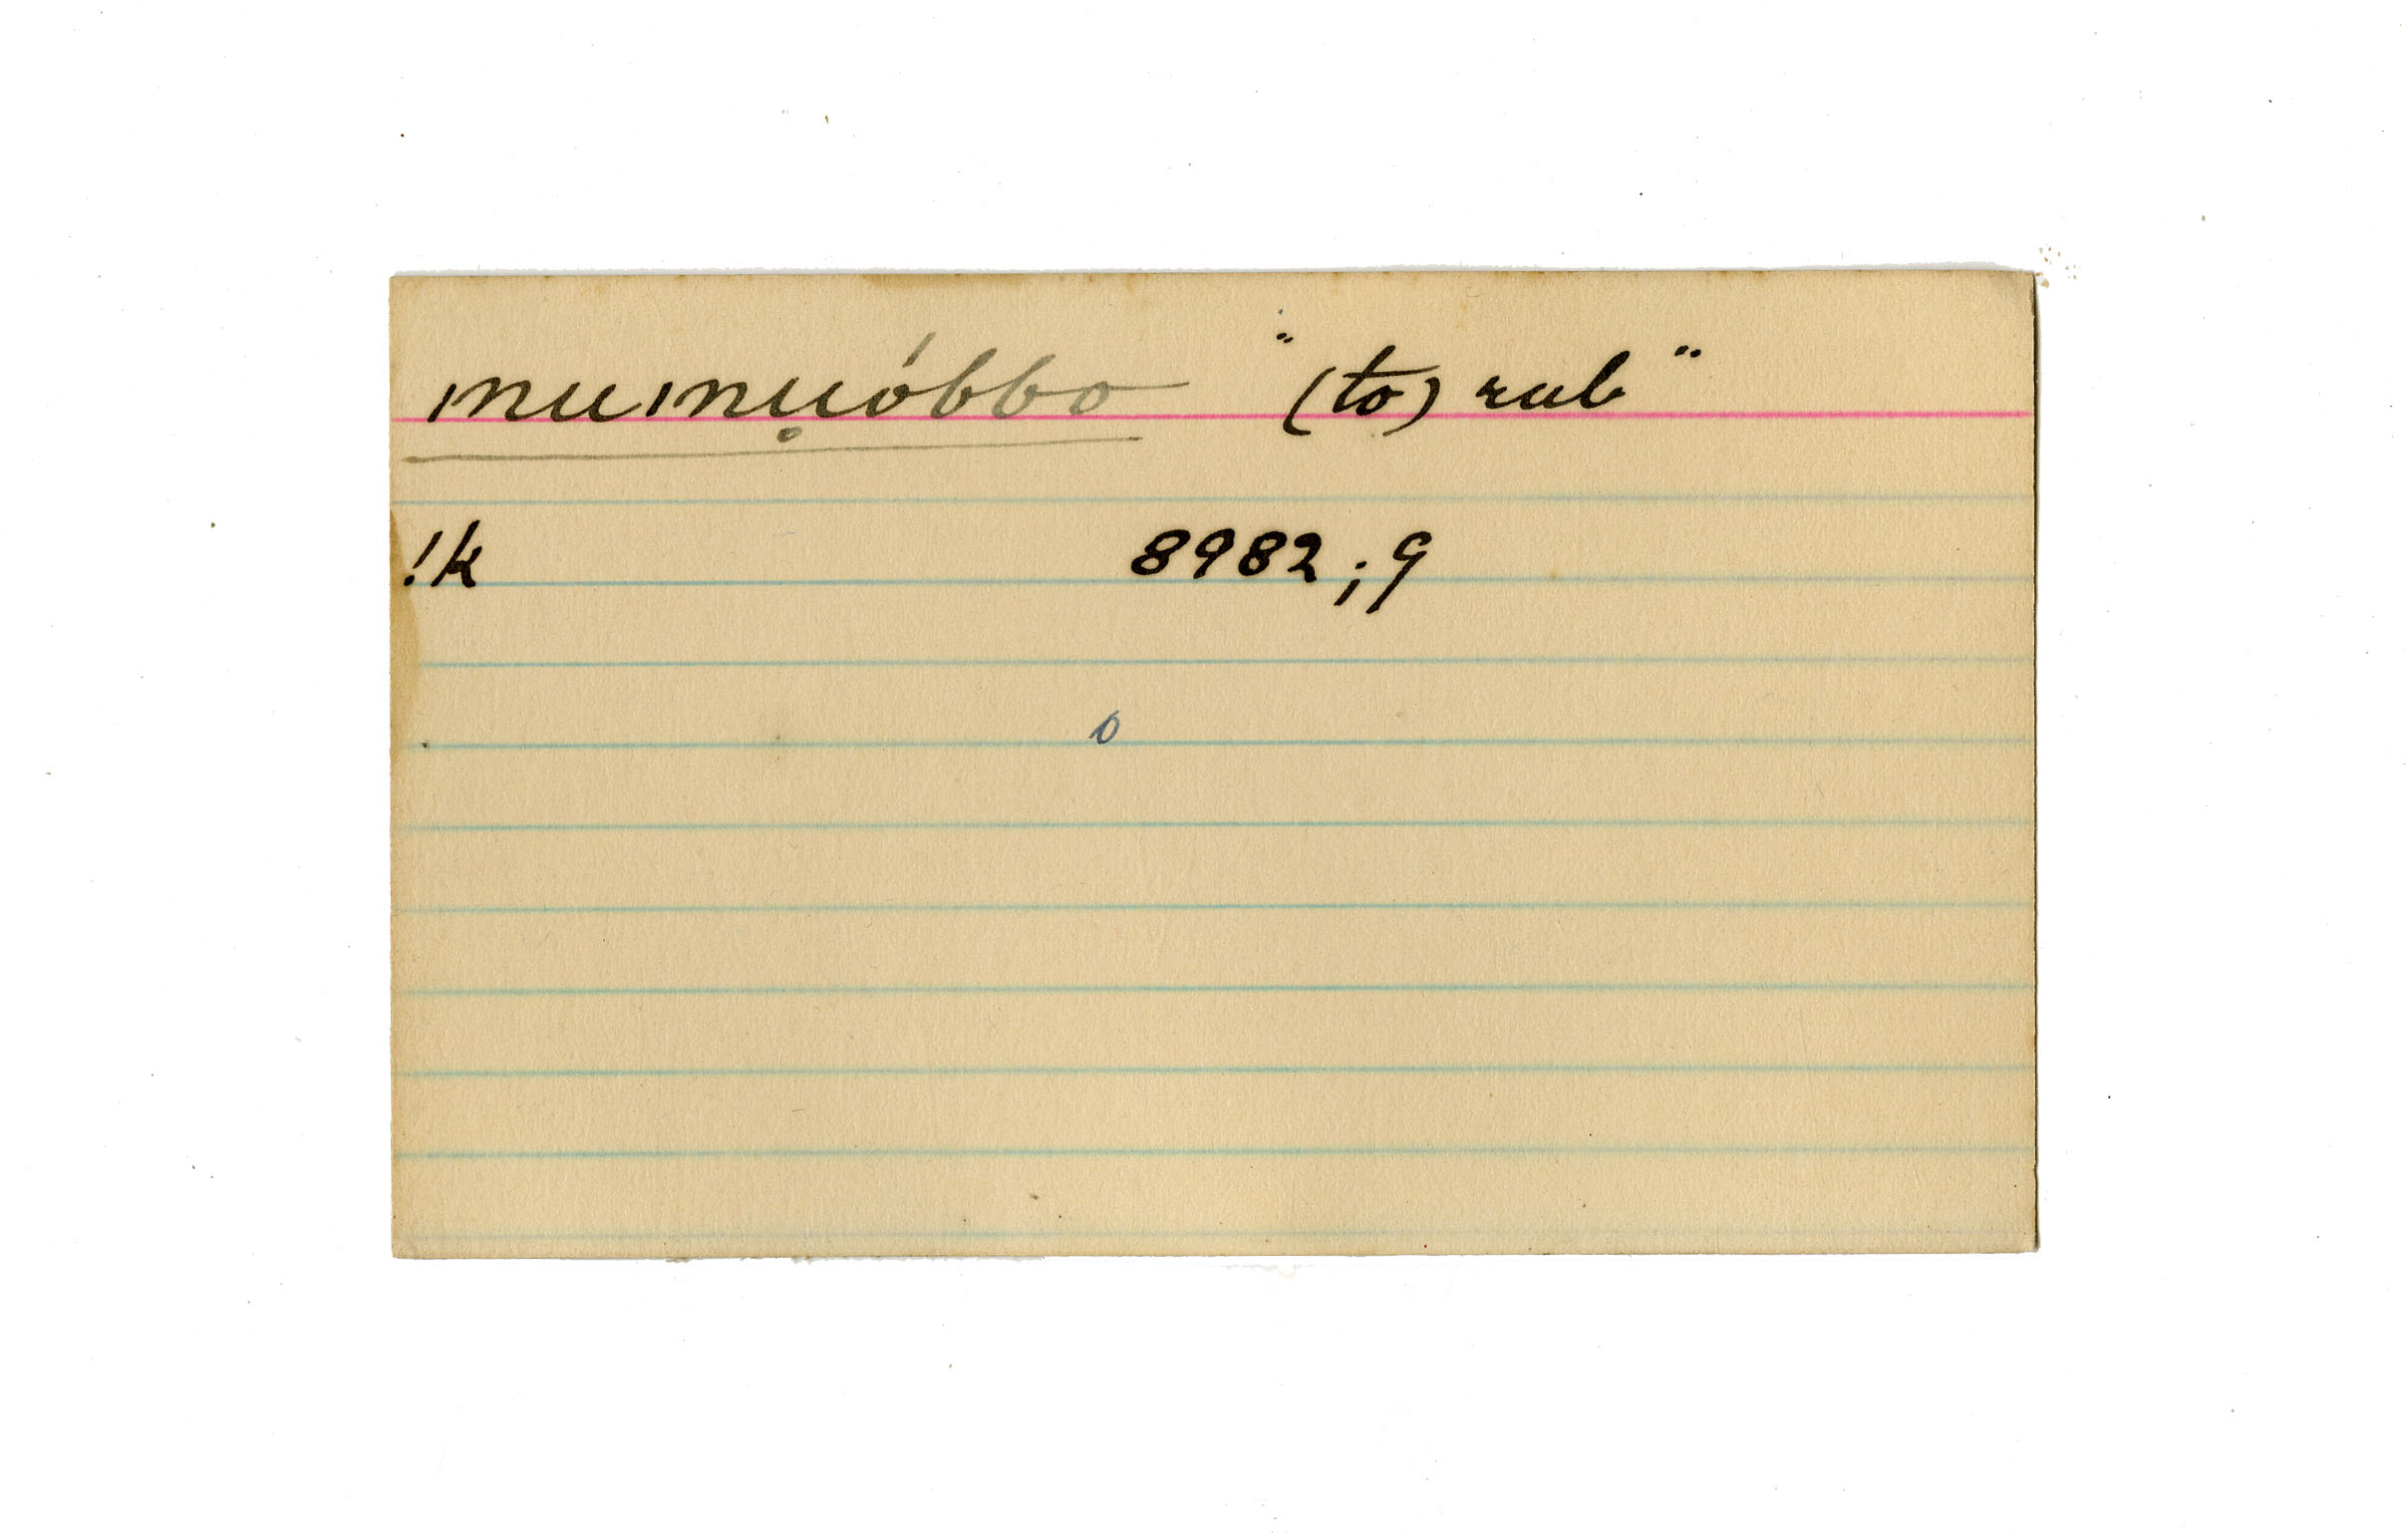 mumu̥óbbo "(to) rub"
!k 8982;9
o